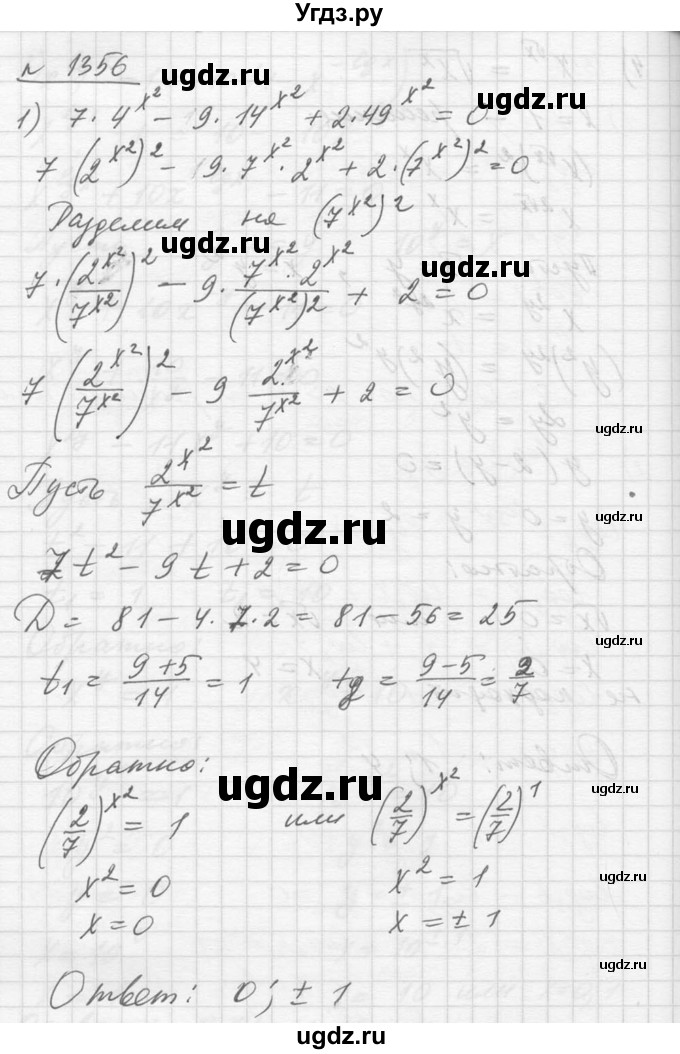 Угдз.ру
n 1356
ugdz.ru
1) 7·4^x² − 9·14^x² + 2·49^x² = 0
ugdz.ru
7(2^x²)² − 9·7^x²·2^x² + 2·(7^x²)² = 0
Разделим на (7^x²)²
ugdz.ru
7·(2^x²/7^x²)² − 9·(7^x²·2^x²)/(7^x²)² + 2 = 0
ugdz.ru
7(2^x²/7^x²)² − 9 2^x²/7^x² + 2 = 0
ugdz.ru
Пусть 2^x²/7^x² = t
ugdz.ru
7t² − 9t + 2 = 0
D = 81 − 4·7·2 = 81 − 56 = 25
ugdz.ru
t₁ = (9+5)/14 = 1 t₂ = (9−5)/14 = 2/7
Обратно:
ugdz.ru
ugdz.ru
(2/7)^x² = 1 или (2/7)^x² = (2/7)¹
x² = 0 x² = 1
ugdz.ru
x = 0 x = ± 1
Ответ: 0; ± 1
ugdz.ru
ugdz.ru